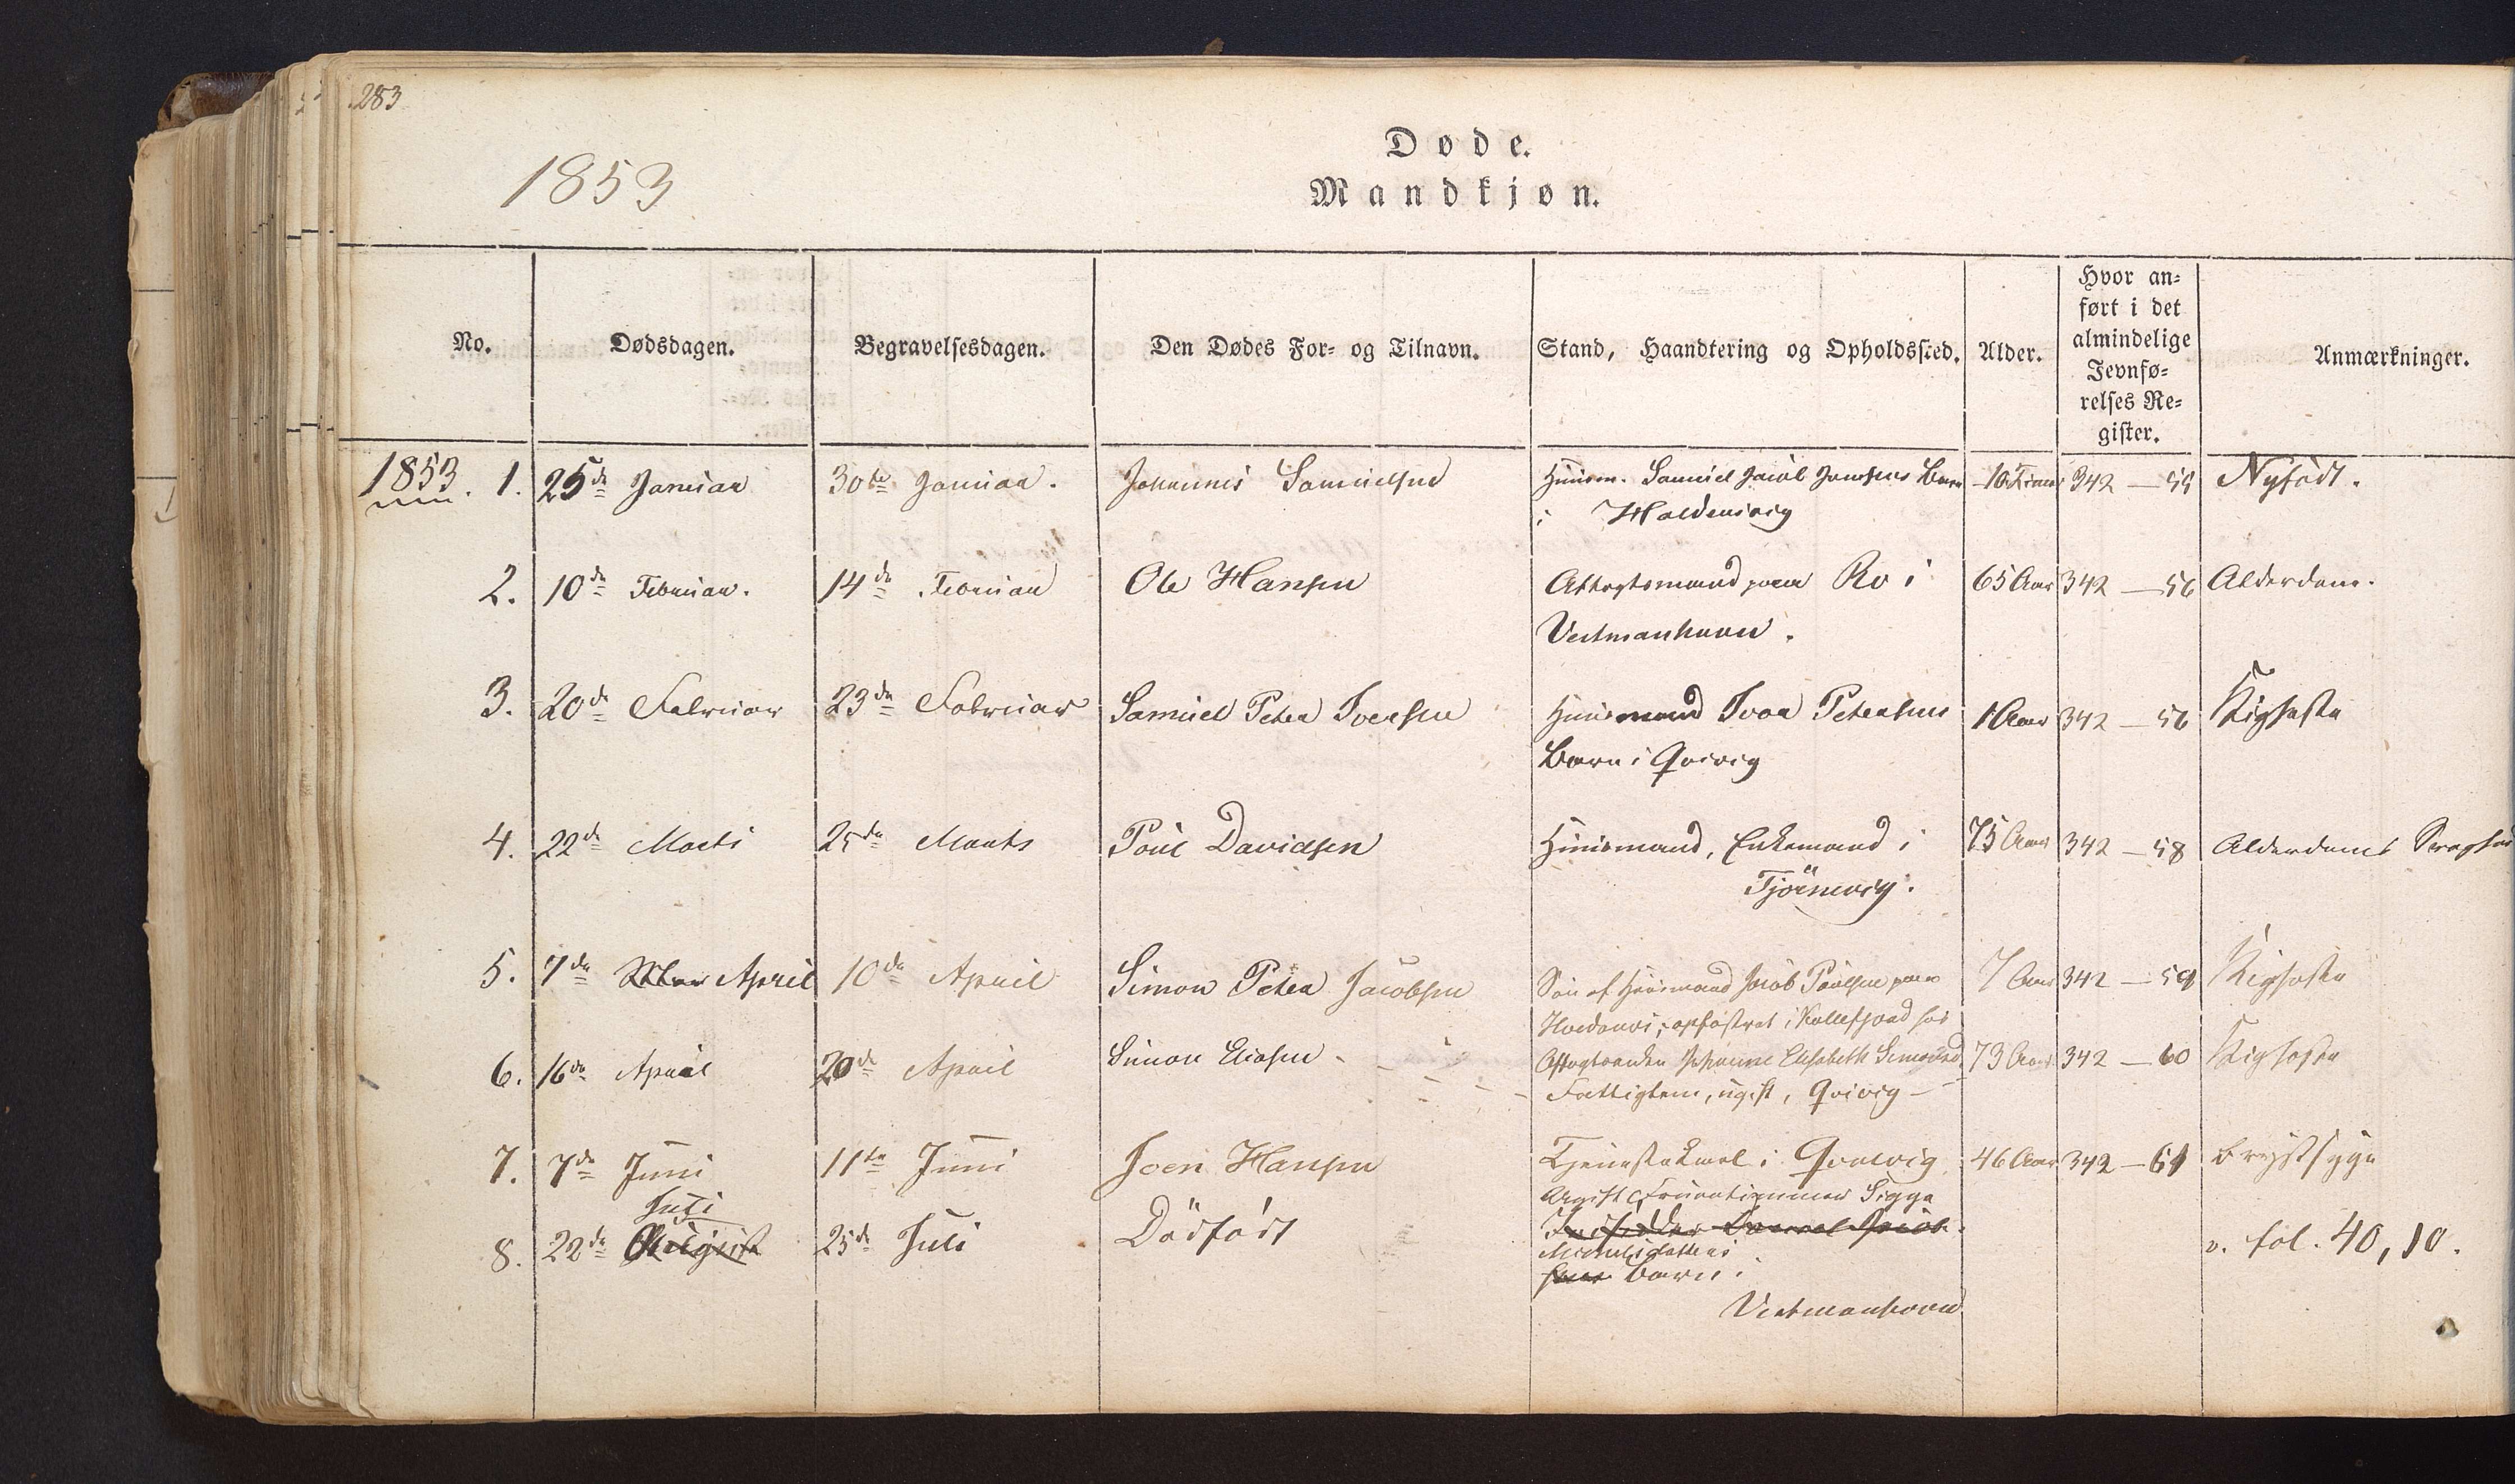 283
1853
Døde.
Mandkjøn.
No.
Dødsdagen.
Begravelsesdagen.
Den Dødes For- og Tilnavn.
Stand, Haandtering og Opholdssted.
Alder.
Hvor an-
ført i det
almindelige
Jevnfø-
relses Re-
gister.
Anmærkninger.
1853. 1. 25de Januar 30te Januar. Johannis Samuelsen Huusm. Samuel Jacob Joensens Barn 10 Timer 342 — 55 Nyfödt.
i Haldersvig
2. 10de Februar. 14de Februar Ole Hansen Aftægtsmand paa Ro i 65 Aar 342 — 56 Alderdom.
Vestmanhavn.
3. 20de Februar 23de Februar Samuel Peter Iversen Huusmand Ivar Petersens 1 Aar 342 — 56 Kighoste
Barn i Qvivig
4. 22de Marts 25de Marts Poul Davidsen Huusmand, Enkemand i 75 Aar 342 — 58 Alderdoms
Tjörnevig.
5. 7de April 10de April Simon Peter Jacobsen Sön af Huusmand Jacob Poulsen paa 7 Aar 342 — 59 Kighoste
opfostret i Kollefjord hos
6. 16de April 20de April Simon Eliasen - Johanne Elisabeth 73 Aar 342 — 60 Kighoste
Fattiglem, ugift, Qvivig —
7. 7de Juni 11te Juni Joen Hansen Tjenestekarl i Qvalvig 46 Aar 342 — 61 Brystsyge
Juli
Ugift Fruentimmer Sigga
8. 22de August 25de Juli Dödfödt v. fol. 40, 10.
Barn i
Vestmanhavn